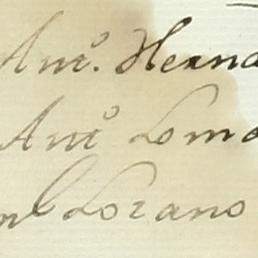 Antº. Herna
Antº Loma
l Lozano